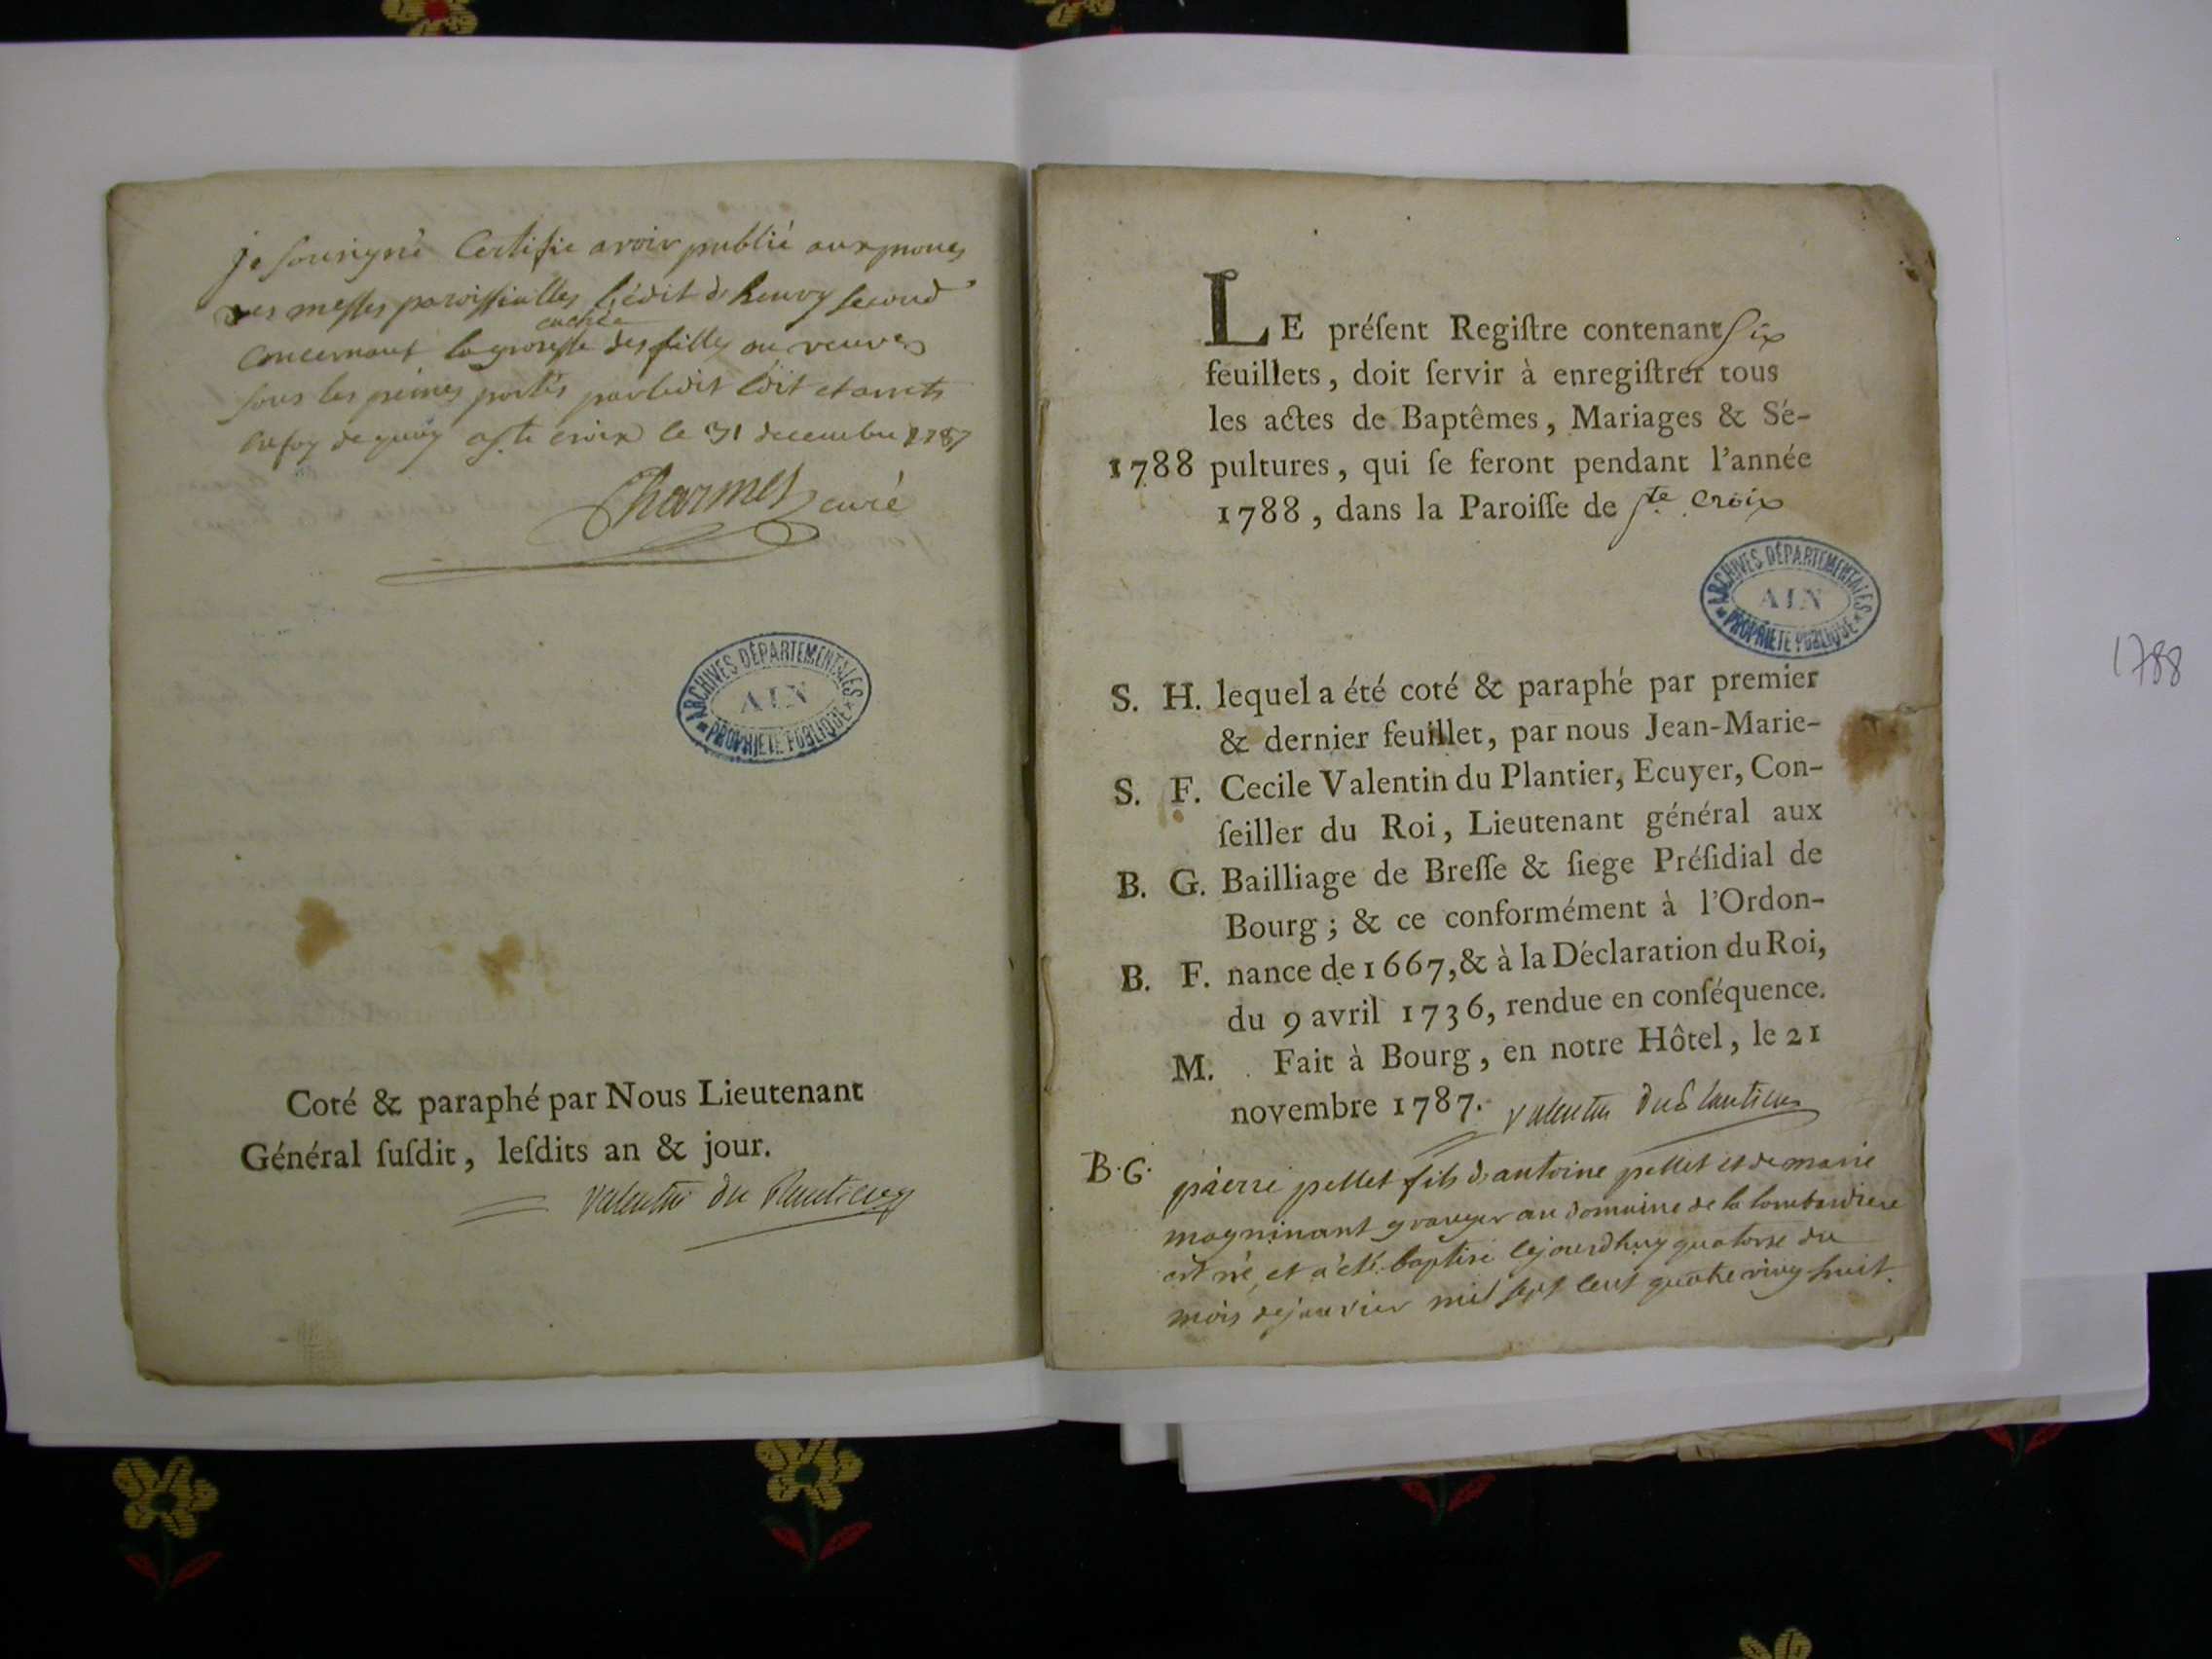 je sousigné Certifie avoir publié aux prones
des messes paroissialles l'édit d'henry second
cachée
concernant la grossesse des filles ou veuves
sous les peines portés par ledit édit et arrets
en foy de quoy a ste croix le 31 decembre 1787
Charmes curé
ARCHIVES DÉPARTEMENTALES
AIN
PROPRIÉTÉ PUBLIQUE
Coté & paraphé par Nous Lieutenant
Général ſuſdit, leſdits an & jour.
Valentin du Plantier
LE préſent Regiſtre contenant six
feuillets, doit ſervir à enregiſtrer tous
les actes de Baptêmes, Mariages & Sé-
1788 pultures, qui ſe feront pendant l'année
1788, dans la Paroiſſe de ste. Croix
ARCHIVES DÉPARTEMENTALES
AIN
PROPRIÉTÉ PUBLIQUE
S. H. lequel a été coté & paraphé par premier
& dernier feuillet, par nous Jean-Marie-
S. F. Cecile Valentin du Plantier, Ecuyer, Con-
ſeiller du Roi, Lieutenant général aux
B. G. Bailliage de Breſſe & ſiege Préſidial de
Bourg; & ce conformément à l'Ordon-
B. F. nance de 1667, & à la Déclaration du Roi,
du 9 avril 1736, rendue en conſéquence.
M. Fait à Bourg, en notre Hôtel, le 21
novembre 1787. Valentin du Plantier
B. G. pierre pellet fils d'antoine pellet et de marie
magninant granger au domaine de la lombardiere
est né, et a été baptisé cejourdhuy quatorse du
mois de janvier mil sept cent quatre vingt huit.
1788